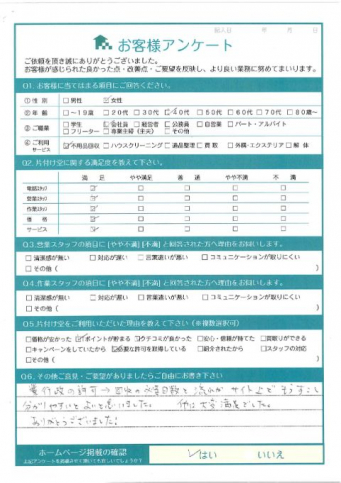 記入日 年 月 日
お客様アンケート
ご依頼を頂き誠にありがとうございました。
お客様が感じられた良かった点・改善点・ご要望を反映し、より良い業務に努めてまいります。
Q1. お客様に当てはまる項目にご回答ください。
① 性 別 □男性 ☑女性
② 年 齢 □~19歳 □20代 □30代 ☑40代 □50代 □60代 □70代 □80歳~
③ ご職業 □学生 ☑会社員 □経営者 □公務員 □自営業 □パート・アルバイト
□フリーター □専業主婦(主夫) □その他
④ ご利用サービス ☑不用品回収 □ハウスクリーニング □遺品整理 □買取 □外構・エクステリア □解体
Q2. 片付け堂に関する満足度を教えて下さい。
満足 やや満足 普通 やや不満 不満
電話スタッフ ☑ □ □ □ □
営業スタッフ ☑ □ □ □ □
作業スタッフ ☑ □ □ □ □
価格 ☑ □ □ □ □
サービス ☑ □ □ □ □
Q3. 営業スタッフの項目に[やや不満][不満]と回答された方へ理由をお伺いします。
□清潔感が無い □対応が遅い □言葉遣いが悪い □コミュニケーションが取りにくい
□その他( )
Q4. 作業スタッフの項目に[やや不満][不満]と回答された方へ理由をお伺いします。
□清潔感が無い □対応が遅い □言葉遣いが悪い □コミュニケーションが取りにくい
□その他( )
Q5. 片付け堂をご利用いただいた理由を教えて下さい(※複数選択可)
□価格が安かった ☑ポイントが貯まる ☑クチコミが良かった □安心・信頼が持てた □買取りができる
□キャンペーンをしていたから ☑必要な許可を取得している □紹介されたから □スタッフの対応
□その他( )
Q6. その他ご意見・ご要望がありましたらご自由にお書き下さい
の許可 → 回収の必要日数と流れが サイト上でもう少し
分かりやすいとよいと思いました。 他は大変満足でした。
ありがとうございました!
ホームページ掲載の確認
上記アンケートを掲載させて頂いても宜しいでしょうか? ✓はい いいえ